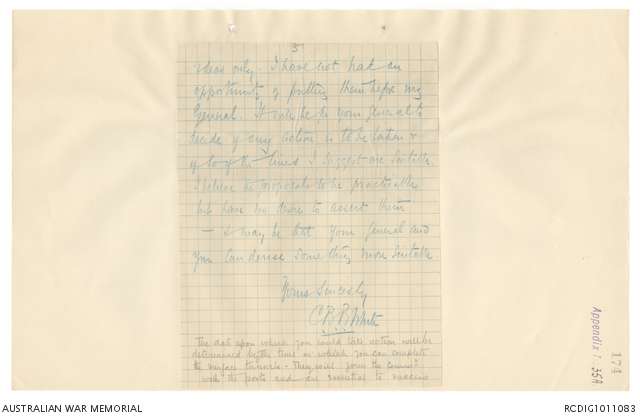 5
ideas only. I have not had an
opportunity of putting them before my
General. It will be for your General to
decide if any action is to be taken &
if so if the lines I suggest are suitable.
I believe the proposals to be practicable
but have no desire to assert them
— it may be that your General and
you can devise something more suitable
Yours Sincerely
C B B White
The date upon which you could take action will be
determined by the time in which you can complete
the surface tunnels - They will form the
with the posts and are essential to success
Appendix 1. 35A
174
AUSTRALIAN WAR MEMORIAL
RCDIG1011083